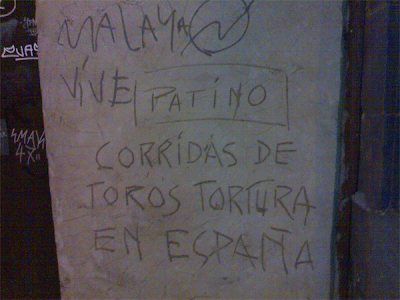 MALAYA N
VIVE PATINO
CORRIDAS DE
TOROS TORTURA
EN ESPAÑA